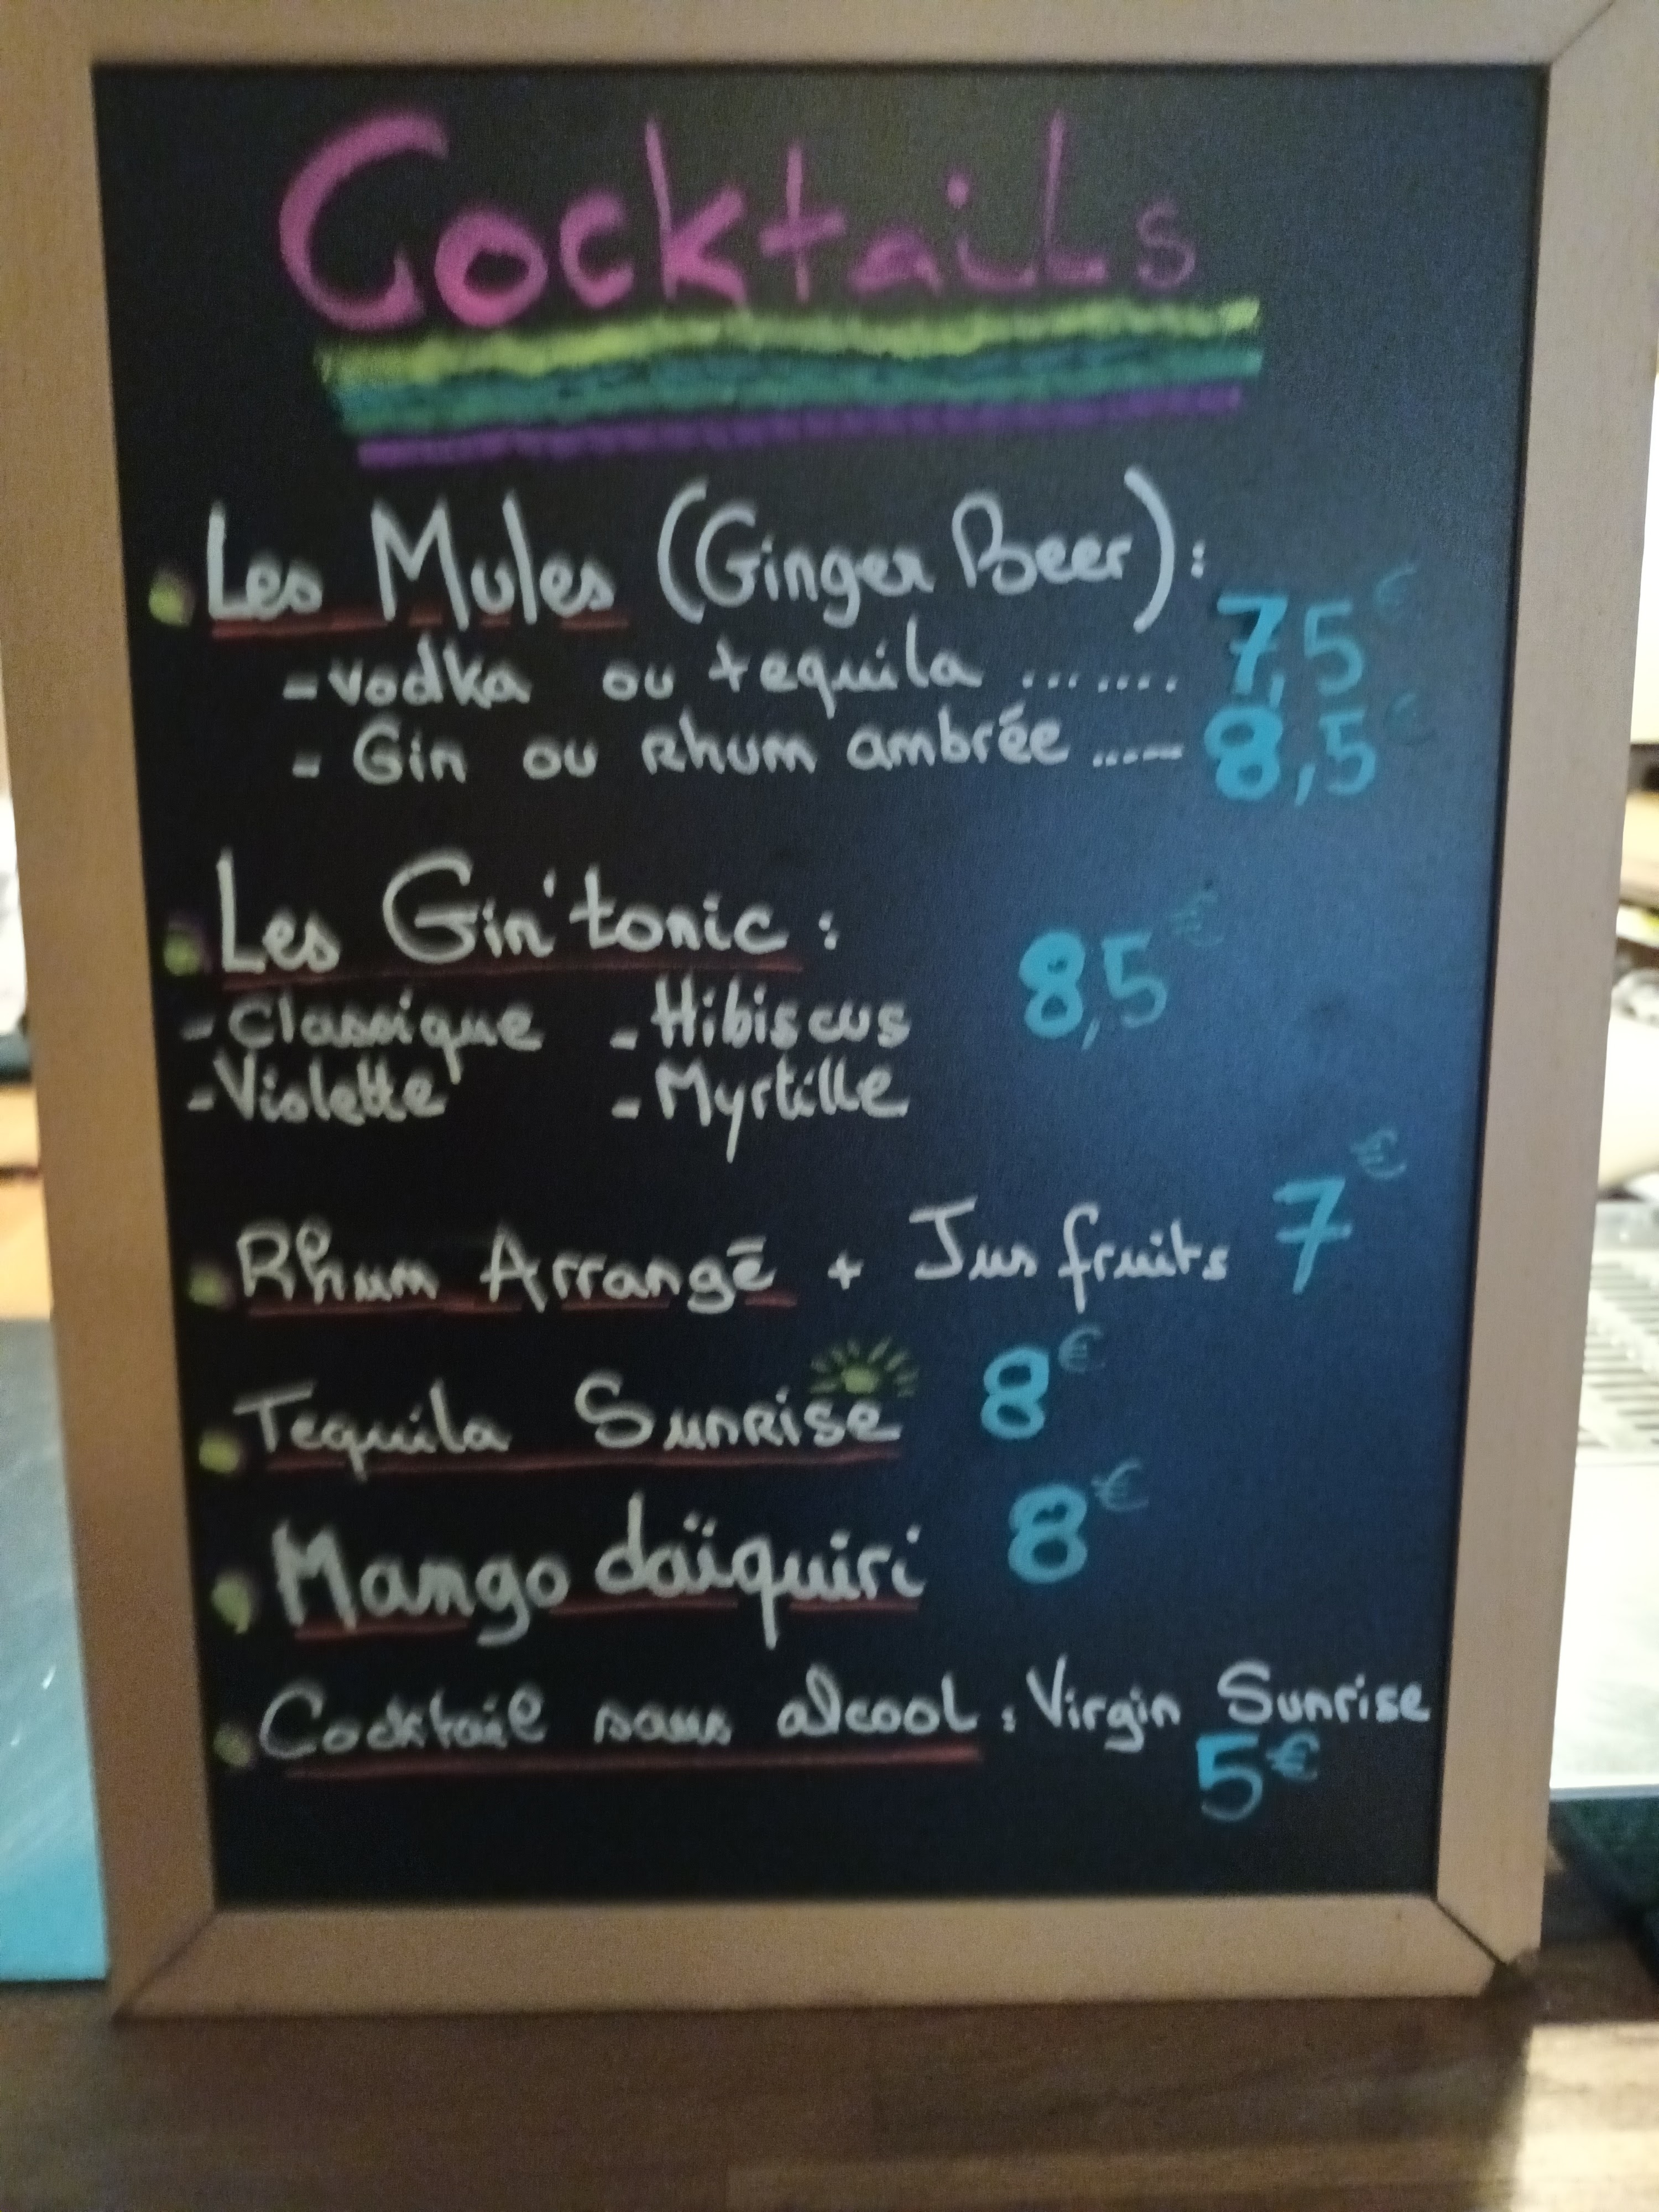 Cocktails
Les Mules (Ginger Beer) :
- vodka ou tequila ....... 7,5€
- Gin ou Rhum ambrée ..... 8,5€
Les Gin'tonic : 8,5€
- Classique - Hibiscus
- Violette - Myrtille
Rhum Arrangé + Jus fruits 7€
Tequila Sunrise 8€
Mango daïquiri 8€
Cocktail sans alcool : Virgin Sunrise
5€